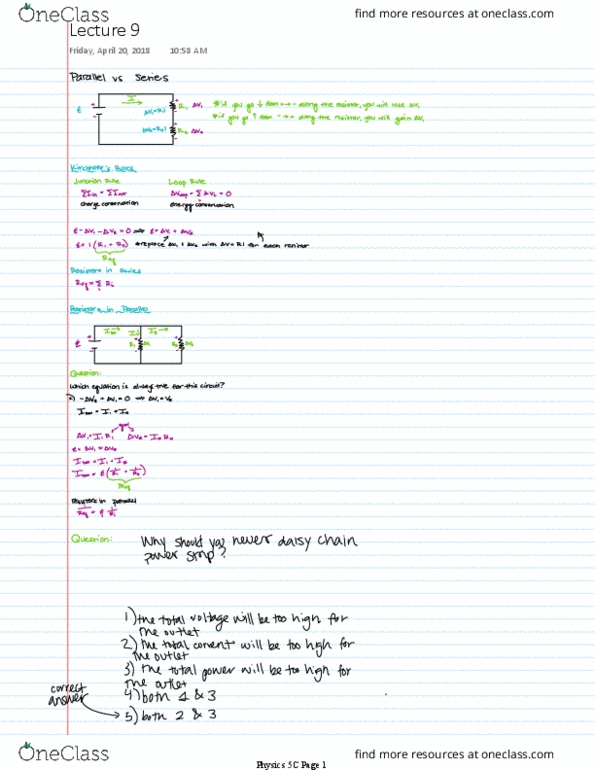 OneClass
find more resources at oneclass.com
Lecture 9
Friday, April 20, 2018 10:58 AM
Parallel vs Series
I
ε
R₁ ΔV₁
ΔV₁=IR₁
R₂ ΔV₂
*if you go ↓ from +→- along the resistor, you will lose ΔV₁
*if you go ↑ from -→+ along the resistor, you will gain ΔV₁
Kirchoff's Rules
Junction Rule
Loop Rule
ΣIin = ΣIout
ΔVloop = Σ ΔVi = 0
charge conservation
energy conservation
ε-ΔV₁-ΔV₂=0 → ε=ΔV₁+ΔV₂
*replace ΔV₁ & ΔV₂ with ΔV=RI for each resistor
Req
Resistors in Series
Req=Σ Ri
Resistors in Parallel
ε
Question:
which equation is always true for this circuit?
ΔV₁=I₁R₁ ΔV₂=I₂R₂
ε=ΔV₁=ΔV₂
Resistors in parallel
Question:
Why should you never daisy chain
power strip?
1) the total voltage will be too high for
the outlet
2) the total current will be too high for
the outlet
3) the total power will be too high for
the outlet
4) both 1 & 3
correct
answer
5) both 2 & 3
OneClass
find more resources at oneclass.com
Physics 5C Page 1